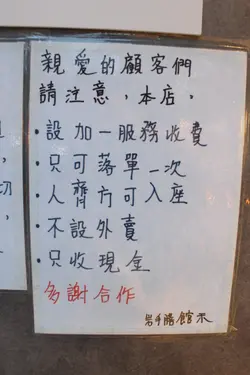 親愛的顧客們
請注意，本店。
·設加一服務收費
·只可落單一次
·人齊方可入座
·不設外賣
·只收現金
多謝合作
岩手勝館示
切